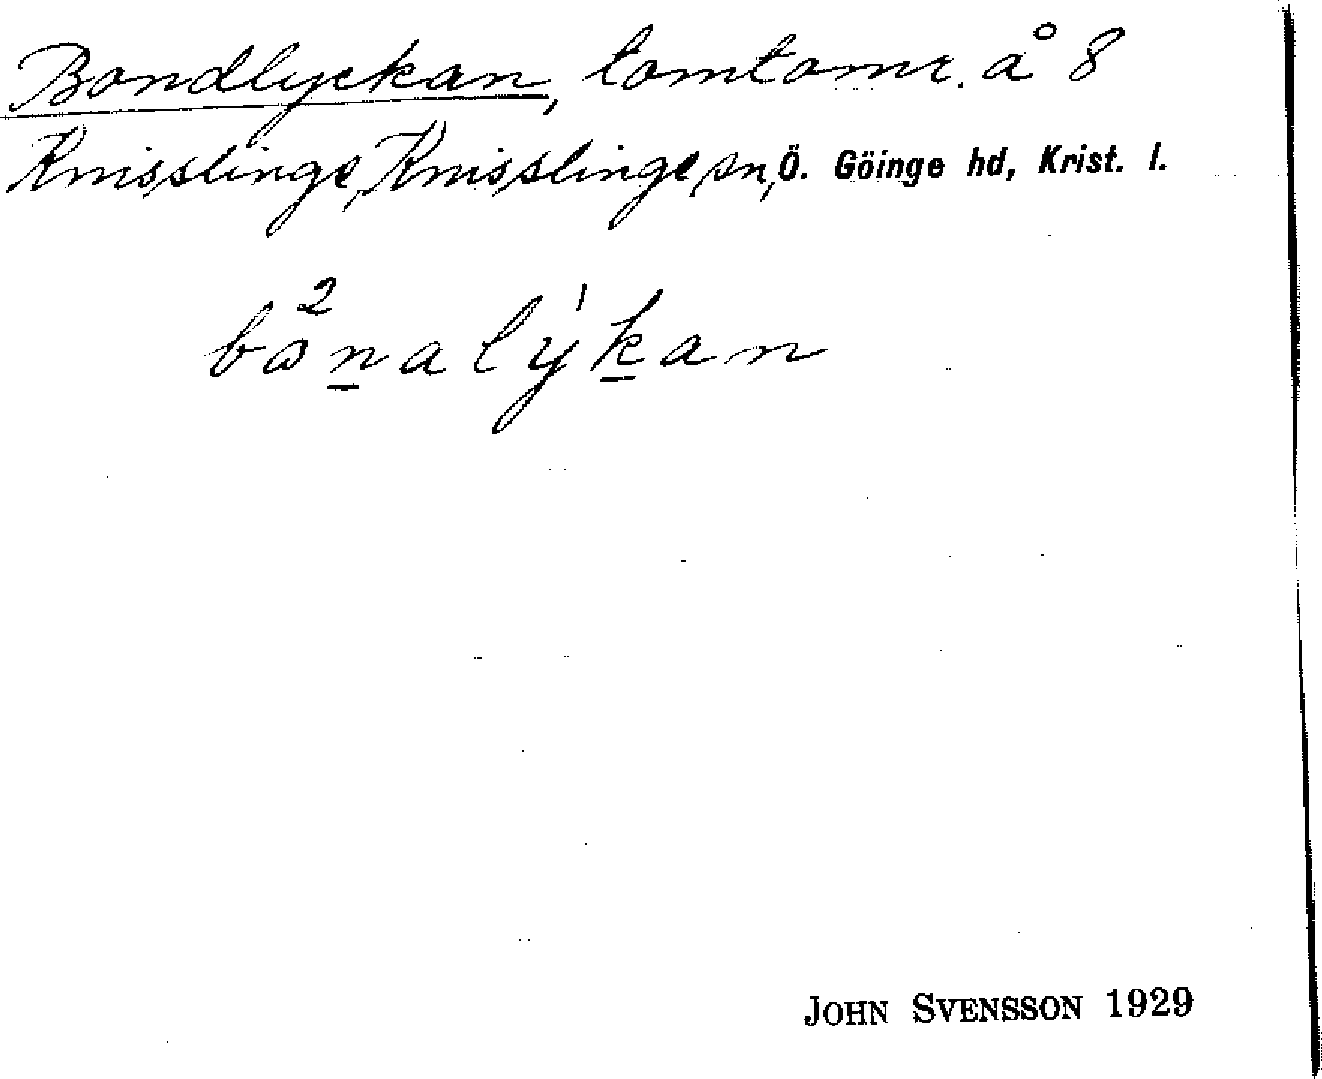 Bondlyckan, tomtomr. å 8
Knisslinge, Knisslinge sn, Ö. Göinge hd, Krist. l.
JOHN SVENSSON 1929